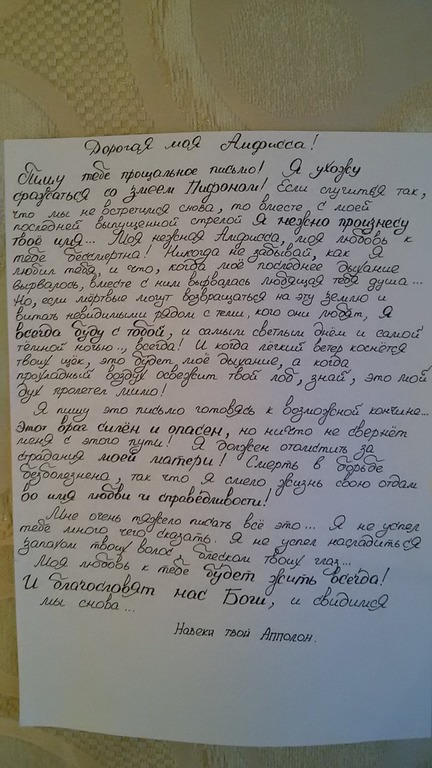 Дорогая моя Амфрисса!
Пишу тебе прощальное письмо! Я ухожу
сражаться со змеем Пифоном! Если случится так,
что мы не встретимся снова, то вместе, с моей
последней выпущенной стрелой Я нежно произнесу
твоё имя... Моя нежная Амфрисса, моя любовь к
тебе бессмертна! Никогда не забывай, как Я
любил тебя, и что, когда моё последнее дыхание
вырвалось, вместе с ним вырвалась любящая тебя душа...
Но, если мёртвые могут возвращаться на эту землю и
витать невидимыми рядом с теми, кого они любят, Я
всегда буду с тобой, и самым светлым днём и самой
тёмной ночью.., всегда! И когда лёгкий ветер коснётся
твоих щёк, это будет моё дыхание, а когда
прохладный воздух освежит твой лоб, знай, это мой
дух пролетел мимо!
Я пишу это письмо готовясь к возможной кончине...
Этот враг силён и опасен, но ничто не свернёт
меня с этого пути! Я должен отомстить за
страдания моей матери! Смерть в борьбе
безболезнена, так что Я смело жизнь свою отдам
во имя любви и справедливости!
Мне очень тяжело писать всё это... Я не успел
тебе много чего сказать. Я не успел насладиться
запахом твоих волос, блеском твоих глаз...
Моя любовь к тебе будет жить всегда!
И благословят нас Боги, и свидимся
мы снова...
Навеки твой Апполон.